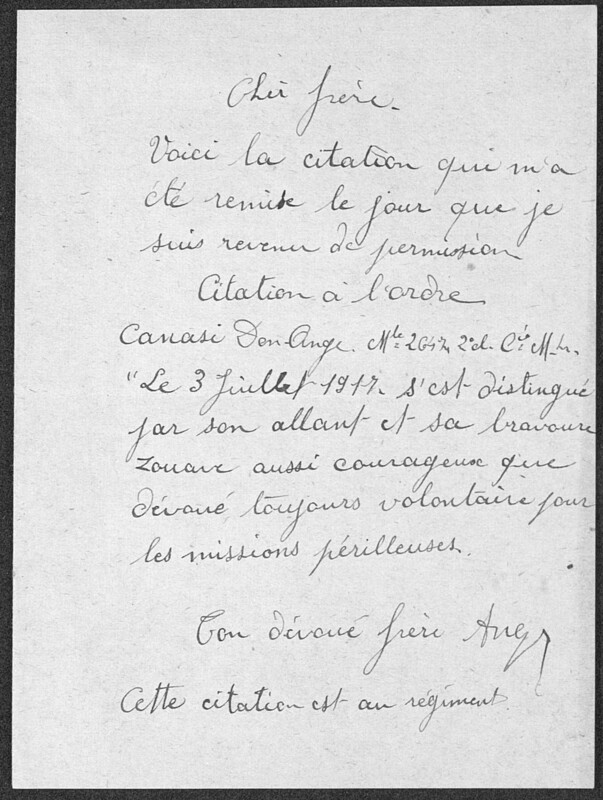 Cher frère.
Voici la citation qui m'a
été remise le jour que je
suis revenu de permission
Citation à l'ordre
Canasi Don-Ange. Mle 2647 2e cl. Cie M
"Le 3 Juillet 1917. s'est distingué
par son allant et sa bravoure
zouave aussi courageux que
dévoué toujours volontaire pour
les missions périlleuses.
Ton dévoué frère Ange
Cette citation est au régiment.